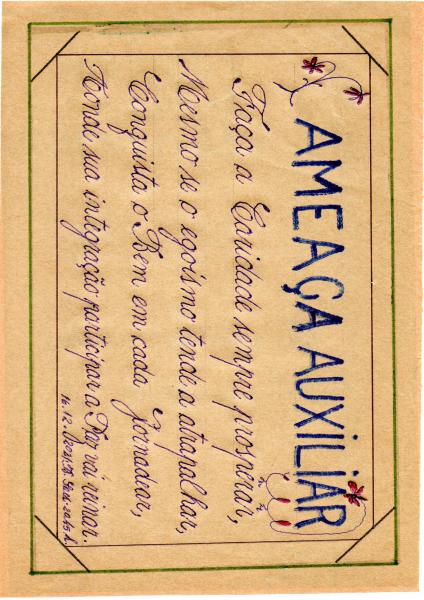 AMEAÇA AUXILIAR
Faça a Caridade sempre prosperar,
Mesmo se o egoísmo tende a atrapalhar,
Conquista o Bem em cada Jornadiar,
Aonde sua integração participar a Paz vái reinar.